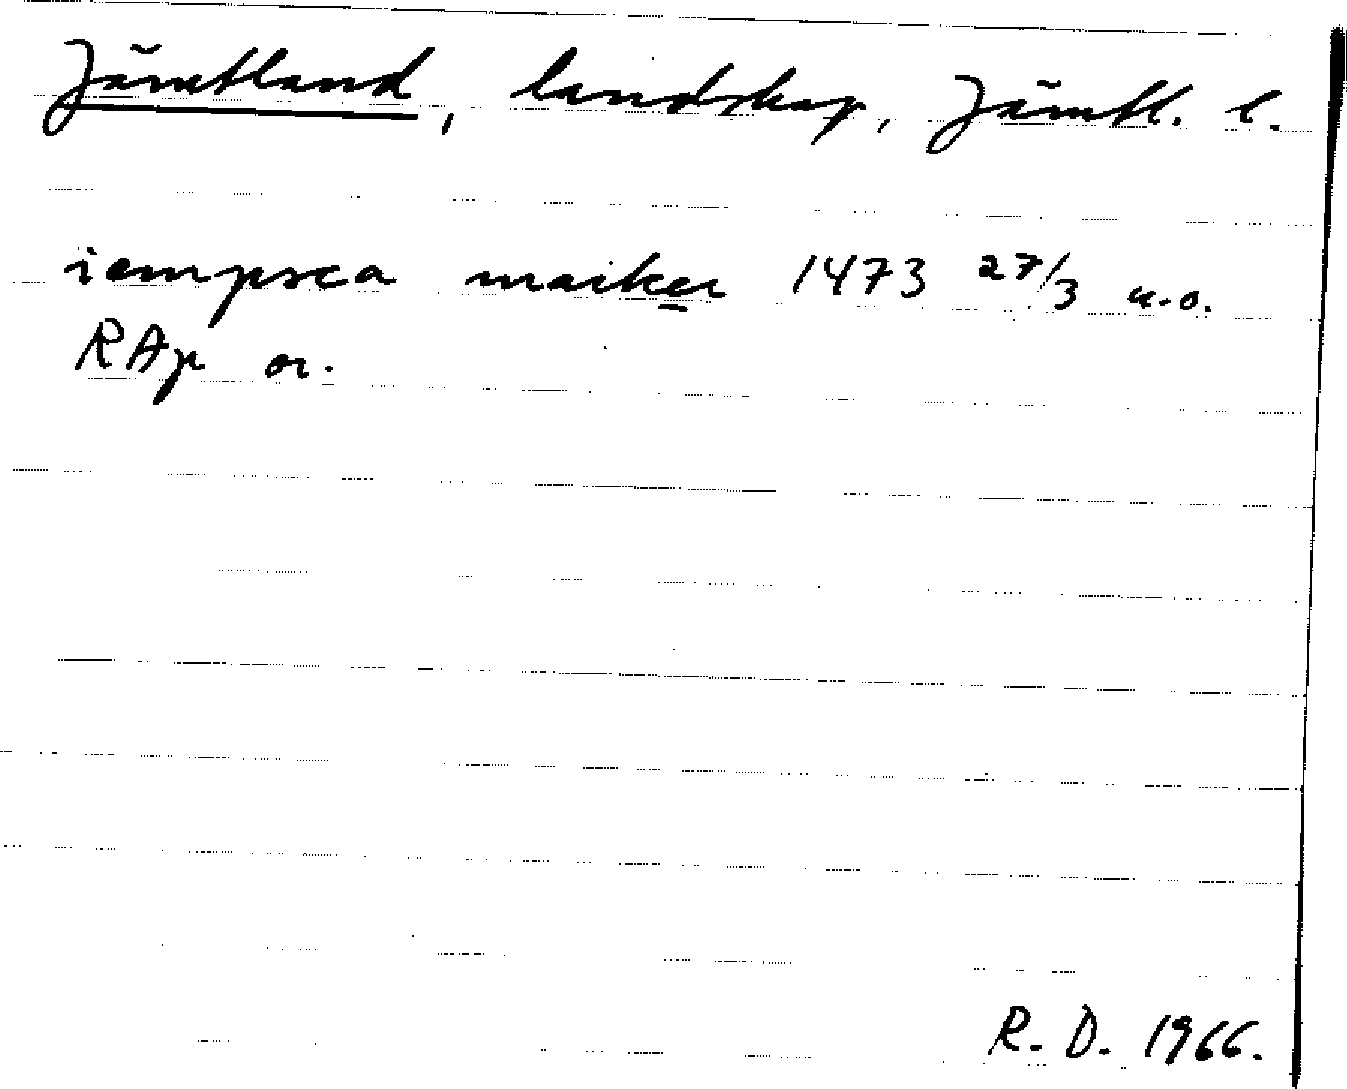 Jämtland, landskap, Jämtl. l.
iempsca marker 1473 27/3 u.o.
RAp or.
R. D. 1966.